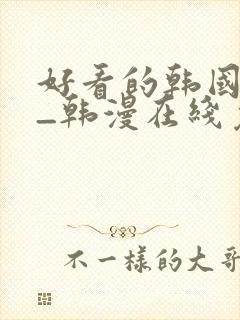 好看的韩国
—韩漫在线
不一样的大哥